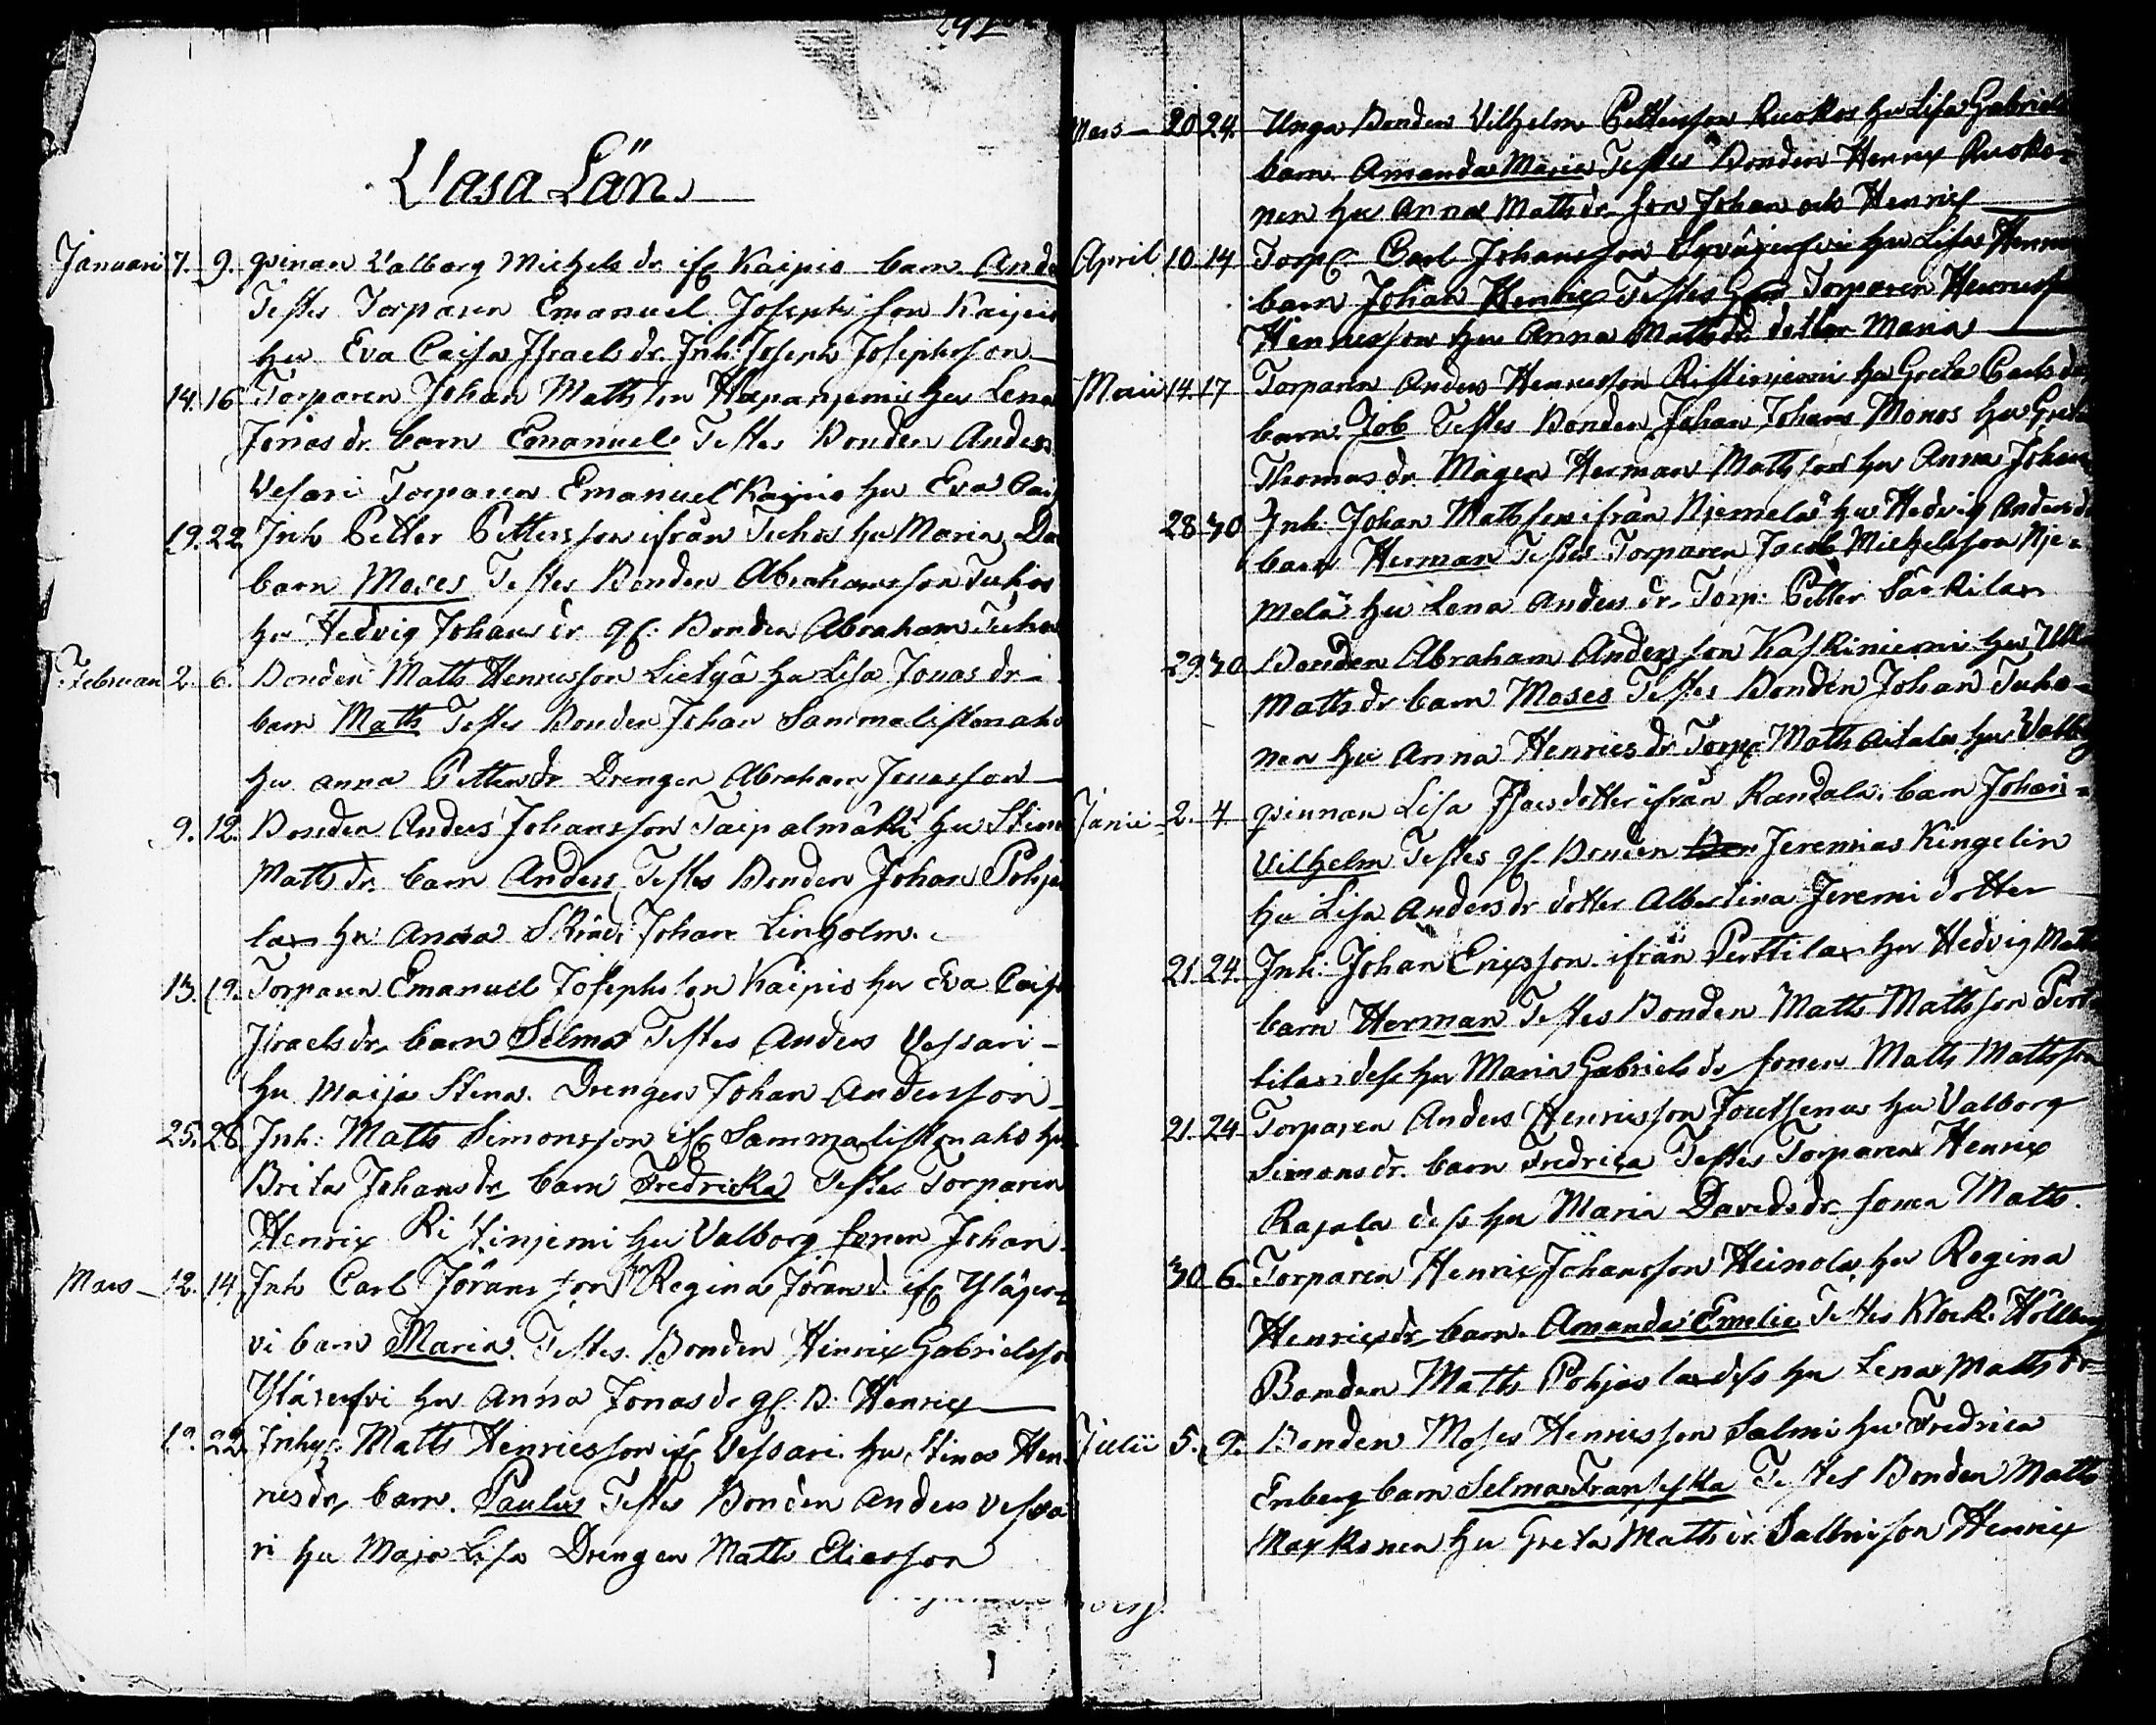 Vasa Län
Januari 7. 9. qvinan Valborg Michels dr if Kaipio barn Ande
Testes Torparen Emanuel Josephsson Kaipio
hu Eva Caisa Israels dr. Inh: Joseph Josephsson
14. 16 Torparen Johan Mattsson Haapaniemi hu Lena
Jonas dr. barn Emanuel Testes Bonden Anders
Vesari Torparen Emanuel Kaipio hu Eva Cais
19. 22 Inh Petter Pettersson ifrån Tuhos hu Maria Da
barn Moses Testes Bonden Abrahamsson Tuhos
hu Hedvig Johans dr gf: Bonden Abraham Tuho
Februari 2. 6. Bonden Matts Henricsson Lietyä hu Lisa Jonas dr
barn Matts Testes Bonden Johan Sammalistonaho
hu Anna Petters dr Drengen Abraham Jonasson
9. 12. Bonden Anders Johansson Taipalmäki hu Stina
Matts dr. barn Anders Testes Bonden Johan Pohja
lax hu Anna Skräd: Johan Linholm.
13. 19. Torparen Emanuel Josephsson Kaipio hu Eva Caisa
Israels dr. barn Selma Testes Anders Vessari
hu Maija Stina. Drengen Johan Andersson
25. 28. Inh: Matts Simonsson if Sammalistonaho hu
Brita Johans dr barn Fredricka Testes Torparen
Henrix Ristinjemi hu Valborg sonen Johan
Mars 12. 14 Inh Carl Jörans son Regina Jörans d. if Ylâjer
vi barn Maria. Testes. Bonden Hinrix Gabrielsson
Ylâjerfvi hu Anna Jonas dr gf. B. Henrix
19. 22. Inhys Matts Henricsson if Vessari hu, Stina Hen
rics dr, barn. Paulus Testes Bonden Anders Vessa
ri hu Maja Lisa Drengen Matts Eliasson
Mars 20 24. Unga Bonden Vilhelm Pettersson Ruokos hu Lisa Gabriel
barn. Amanda Maria Testes Bonden Henrix Ruoko-
nen hu Anna Matts dr. son Johan och Henrix
April 10 14 Torp. Carl Johansson hu Lisa Henri
barn Johan Henrix Testes Torparen Henricss
Henricsson hu Anna Matts dr. dotter Maria
Maii 14. 17 Torparen Anders Henricsson Ristinjemi hu Greta Carls dr
barn. Job Testes Bonden Johan Johans Monos hu Greta
Thomas dr. Mågen Herman Mattsson hu Anna Johan
28. 30 Inh: Johan Mattsson ifrån Njemelä hu Hedvig Anders d
barn Herman Testes Torparen Jacob Michelsson Nje-
melä hu Lena Anders dr. Torp: Petter Särkilax
29. 30 Bonden Abraham Andersson Kaskiniemi hu Ull
Matts dr barn Moses Testes Bonden Johan Tuho-
nen hu Anna Henrics dr Torp: Matts Aitala hu Valbg
Junii 2. 4 qvinnan Lisa Isacsdotter ifrån Randala. barn Johan
Vilhelm Testes gf. Bonden Jeremias Kingelin
hu Lisa Anders dr dotter Albertina Jeremi dotter
21. 24. Inh: Johan Ericsson ifrån Perttilax hu Hedvig Matts
barn Herman Testes Bonden Matts Mattsson Pert
tilax dess hu Maria Gabriels dr sonen Matts Mattsson
21. 24 Torparen Anders Henricsson Joutsenus hu Valborg
Simons dr. barn Fredrica Testes Torparen Henrix
Rajala dess hu Maria Davids dr. sonen Matts.
30 6. Torparen Henrix Johansson Heinola hu Regina
Henrics dr barn. Amanda Emelie Testes Klock. Hollberg
Bonden Matts Pohjas lax dess hu Lena Matts dr
Julii 5. 9. Bonden Moses Henricsson Salmi hu Fredrica
Enberg barn Selma Fransiska Testes Bonden Matts
Markonen hu Greta Matts dr. Henrix